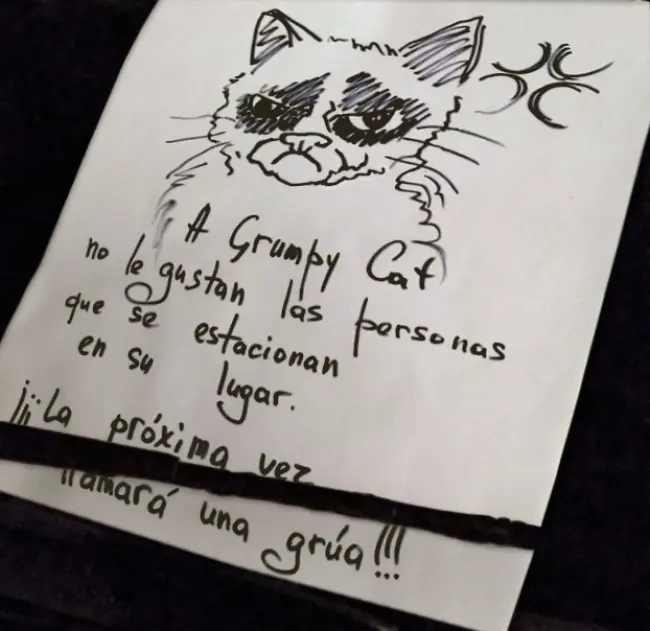 A Grumpy Cat
no le gustan las personas
que se estacionan
en su lugar.
¡¡¡La próxima vez
llamará una grúa!!!